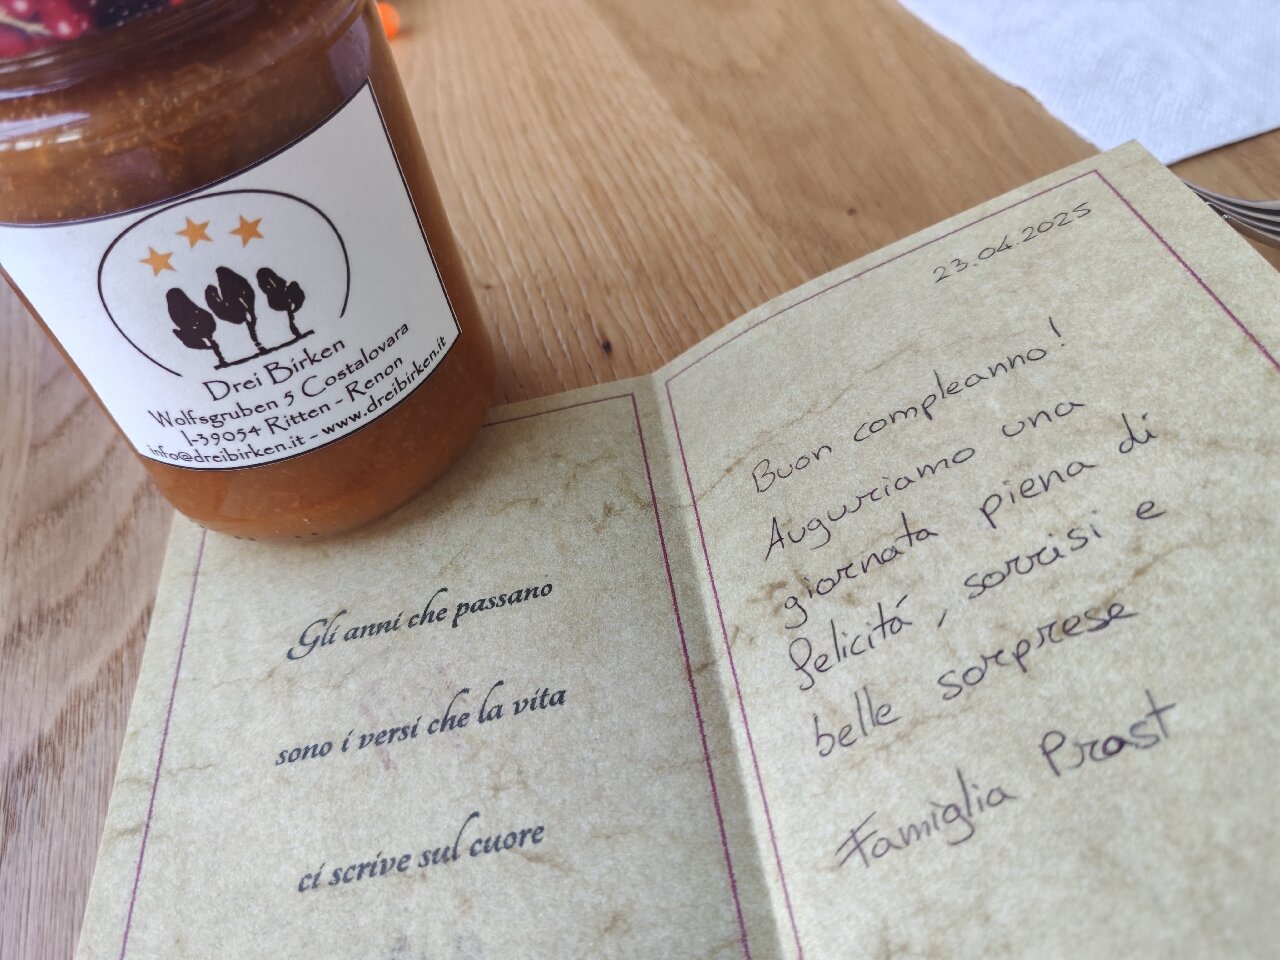 Drei Birken
Wolfsgruben 5 Costalovara
I-39054 Ritten - Renon
info@dreibirken.it - www.dreibirken.it
Gli anni che passano
sono i versi che la vita
ci scrive sul cuore
23.04.2025
Buon compleanno!
Auguriamo una
giornata piena di
felicitá, sorrisi e
belle sorprese
Famiglia Prast